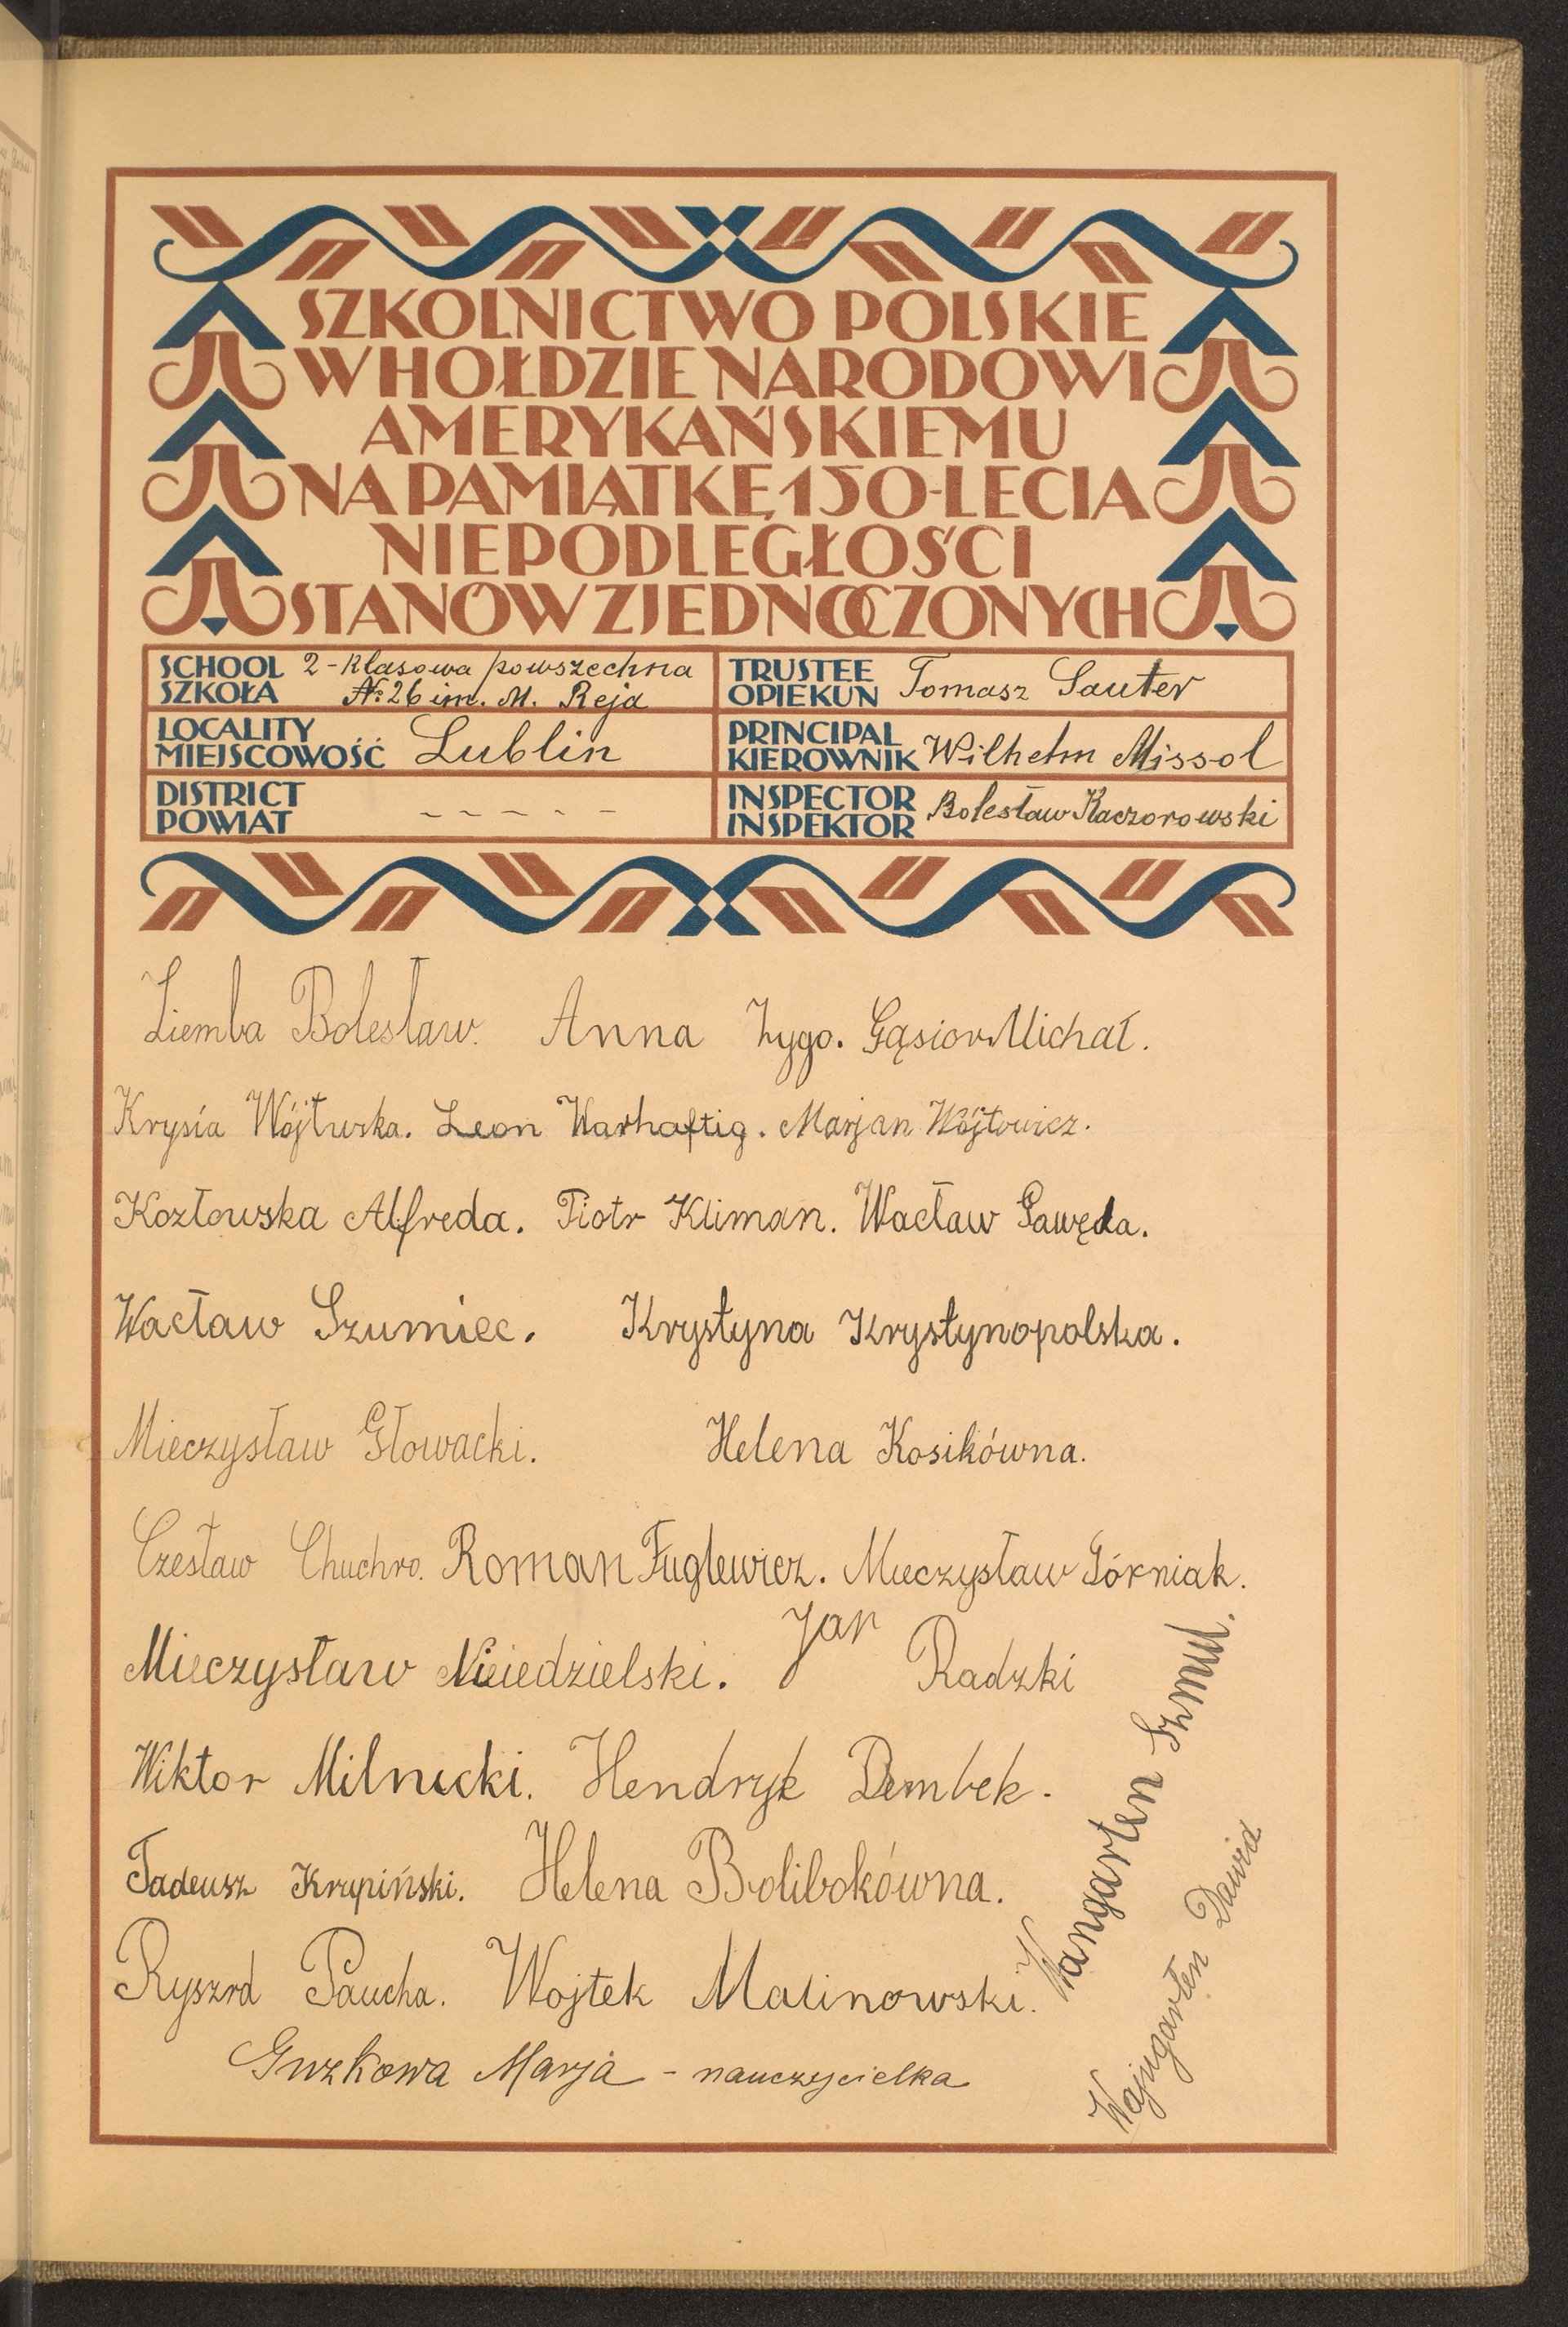 SZKOLNICTWO POLSKIE
W HOŁDZIE NARODOWI
AMERYKAŃSKIEMU
NA PAMIĄTKĘ 150-LECIA
NIEPODLEGŁOŚCI
STANÓW ZJEDNOCZONYCH
SCHOOL SZKOŁA 2-klasowa powszechna
№ 26 im. M. Reja
TRUSTEE OPIEKUN Tomasz Sauter
LOCALITY MIEJSCOWOŚĆ Lublin
PRINCIPAL KIEROWNIK Wilhelm Missol
DISTRICT POWIAT - - - - -
INSPECTOR INSPEKTOR Bolesław Kaczorowski
Ziemba Bolesław. Anna Zygo. Gąsior Michał.
Krysia Wójturska. Leon Warhaftig. Marjan Wójtowicz.
Kozłowska Alfreda. Piotr Kliman. Wacław Gawęda.
Wacław Szumiec. Krystyna Krystynopolska.
Mieczysław Głowacki. Helena Kosikówna.
Czesław Chuchro. Roman Fuglewicz. Mieczysław Górniak.
Mieczysław Niedzielski. Jan Radzki
Wiktor Milnicki. Hendryk Dembek.
Tadeusz Krupiński. Helena Bolibokówna.
Ryszrd Paucha. Wojtek Malinowski.
Guzkowa Marja - nauczycielka
Wangarten Szmul.
Wajngarten Dawid